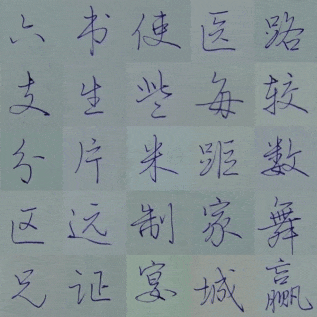 六 书 使 医 路
支 生 些 每 较
分 片 米 距 数
区 远 制 家 舞
兄 证 宴 城 赢